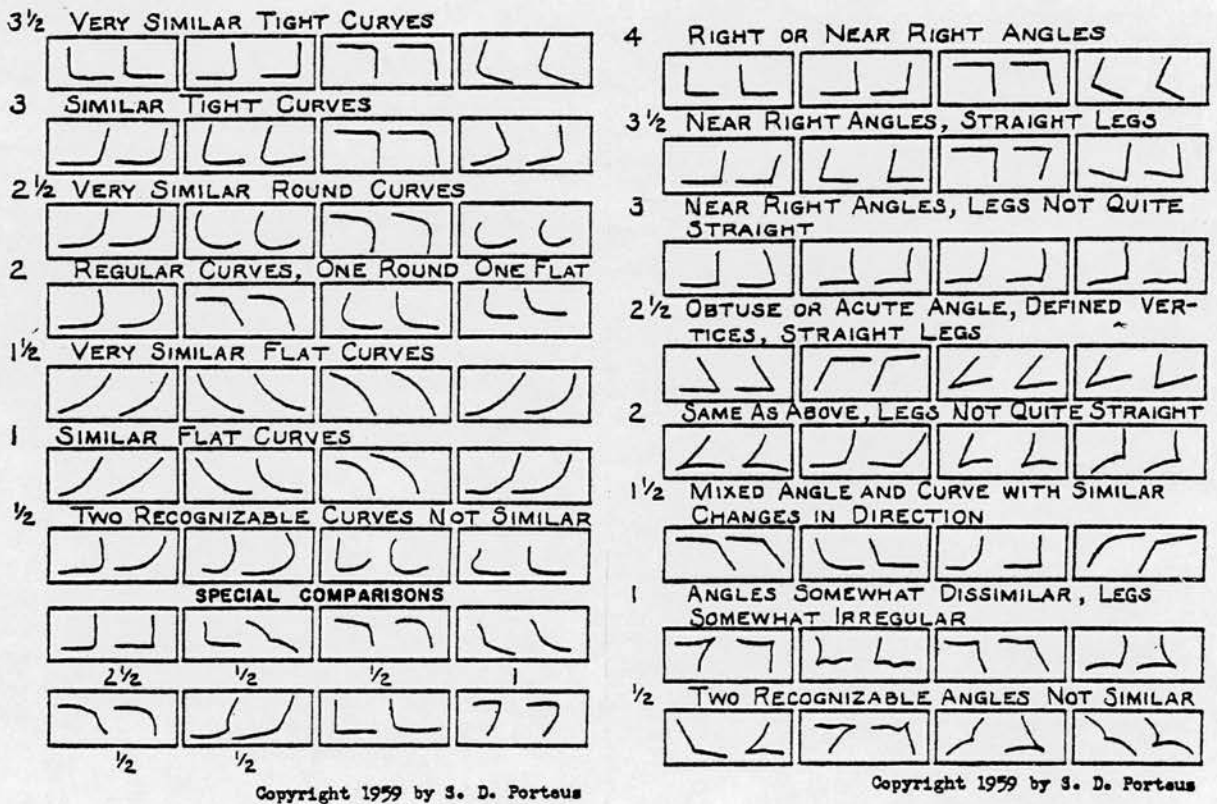 3½ VERY SIMILAR TIGHT CURVES
3 SIMILAR TIGHT CURVES
2½ VERY SIMILAR ROUND CURVES
2 REGULAR CURVES, ONE ROUND ONE FLAT
1½ VERY SIMILAR FLAT CURVES
1 SIMILAR FLAT CURVES
½ TWO RECOGNIZABLE CURVES NOT SIMILAR
SPECIAL COMPARISONS
2½ ½ ½ 1
½ ½
Copyright 1959 by S. D. Porteus
4 RIGHT OR NEAR RIGHT ANGLES
3½ NEAR RIGHT ANGLES, STRAIGHT LEGS
3 NEAR RIGHT ANGLES, LEGS NOT QUITE
STRAIGHT
2½ OBTUSE OR ACUTE ANGLE, DEFINED VER-
TICES, STRAIGHT LEGS
2 SAME AS ABOVE, LEGS NOT QUITE STRAIGHT
1½ MIXED ANGLE AND CURVE WITH SIMILAR
CHANGES IN DIRECTION
1 ANGLES SOMEWHAT DISSIMILAR, LEGS
SOMEWHAT IRREGULAR
½ TWO RECOGNIZABLE ANGLES NOT SIMILAR
Copyright 1959 by S. D. Porteus